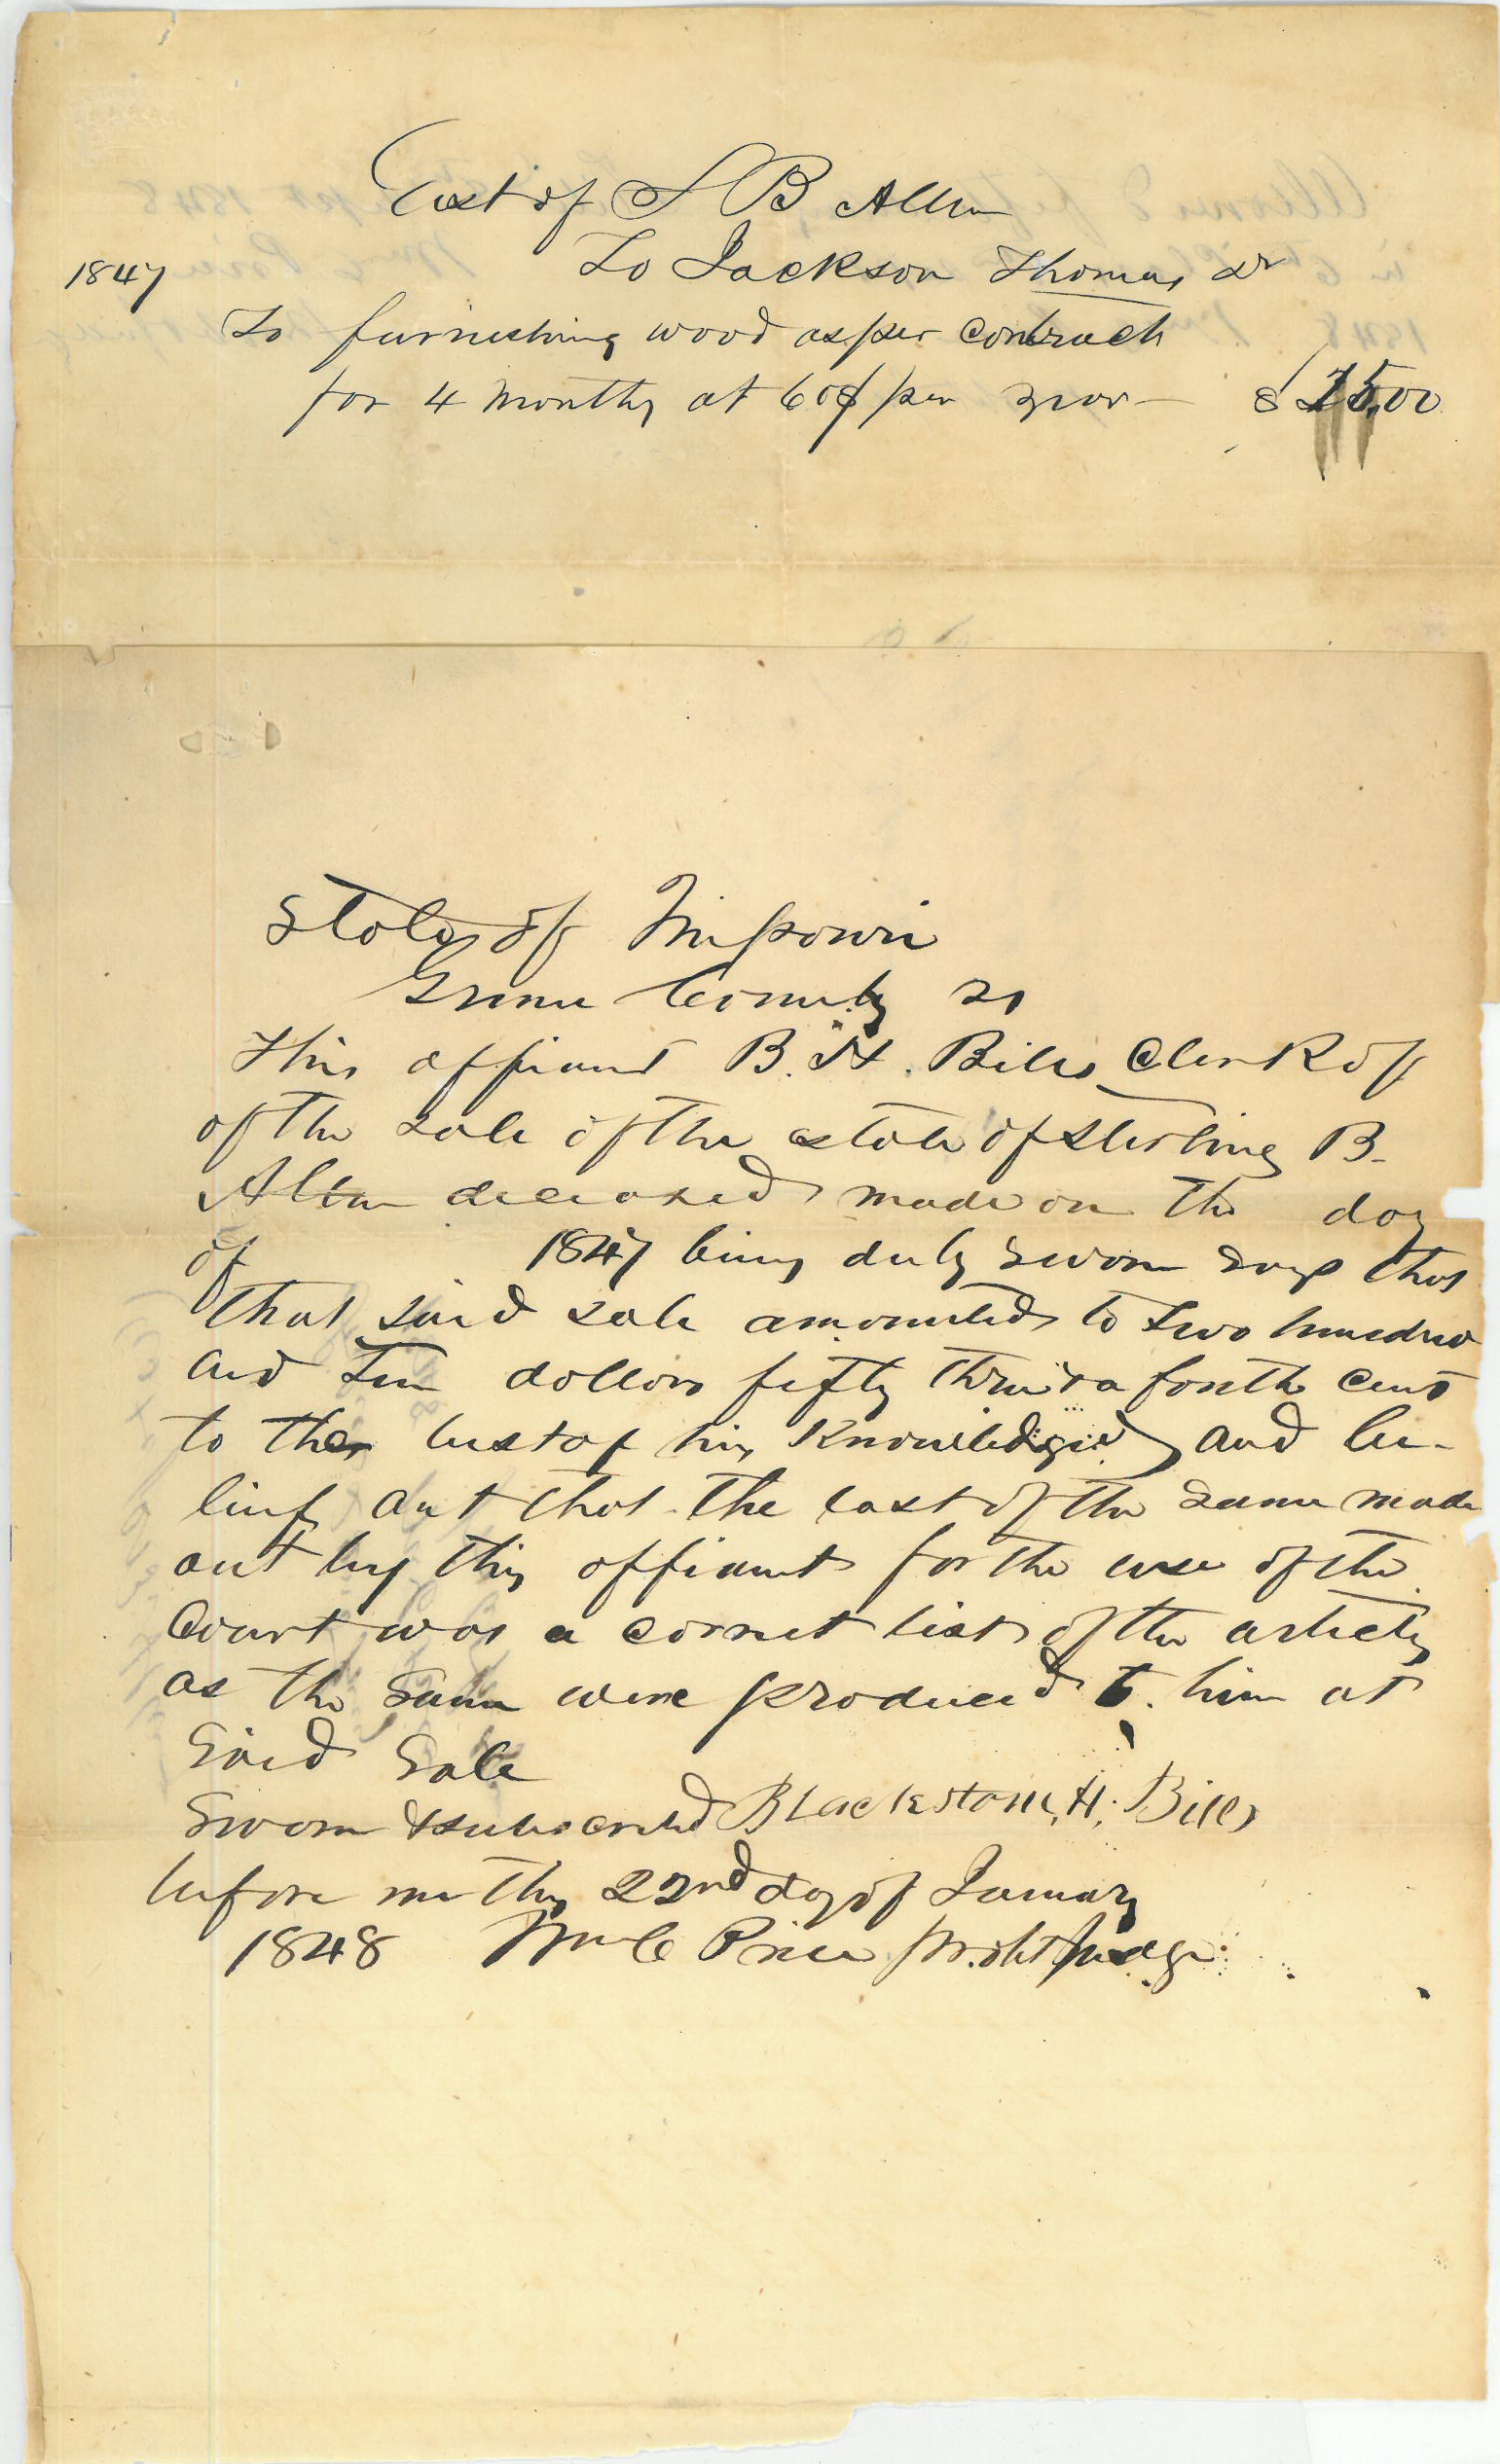 Est of S B Allen
To Jackson Thomas Dr
1847
To furnishing wood as per contract
for 4 months at 60$ per year — $ 15,00
State of Missouri
Greene County ss
This affiant B. H. Bills Clerk of
of the sale of the estate of Sterling B.
Allen deceased made on the day
of 1847 being duly sworn says that
that said sale amounted to two hundred
and Ten dollars fifty three & a fourth cents
to the best of his knowledge and be-
lief and that the last of the same made
out by this affiant for the use of the
Court was a correct list of the articles
as the same were produced to him at
said sale
Sworn & subscribed Blackstone, H. Bills
before me this 22nd day of January
1848 Wm C Price probt Judge